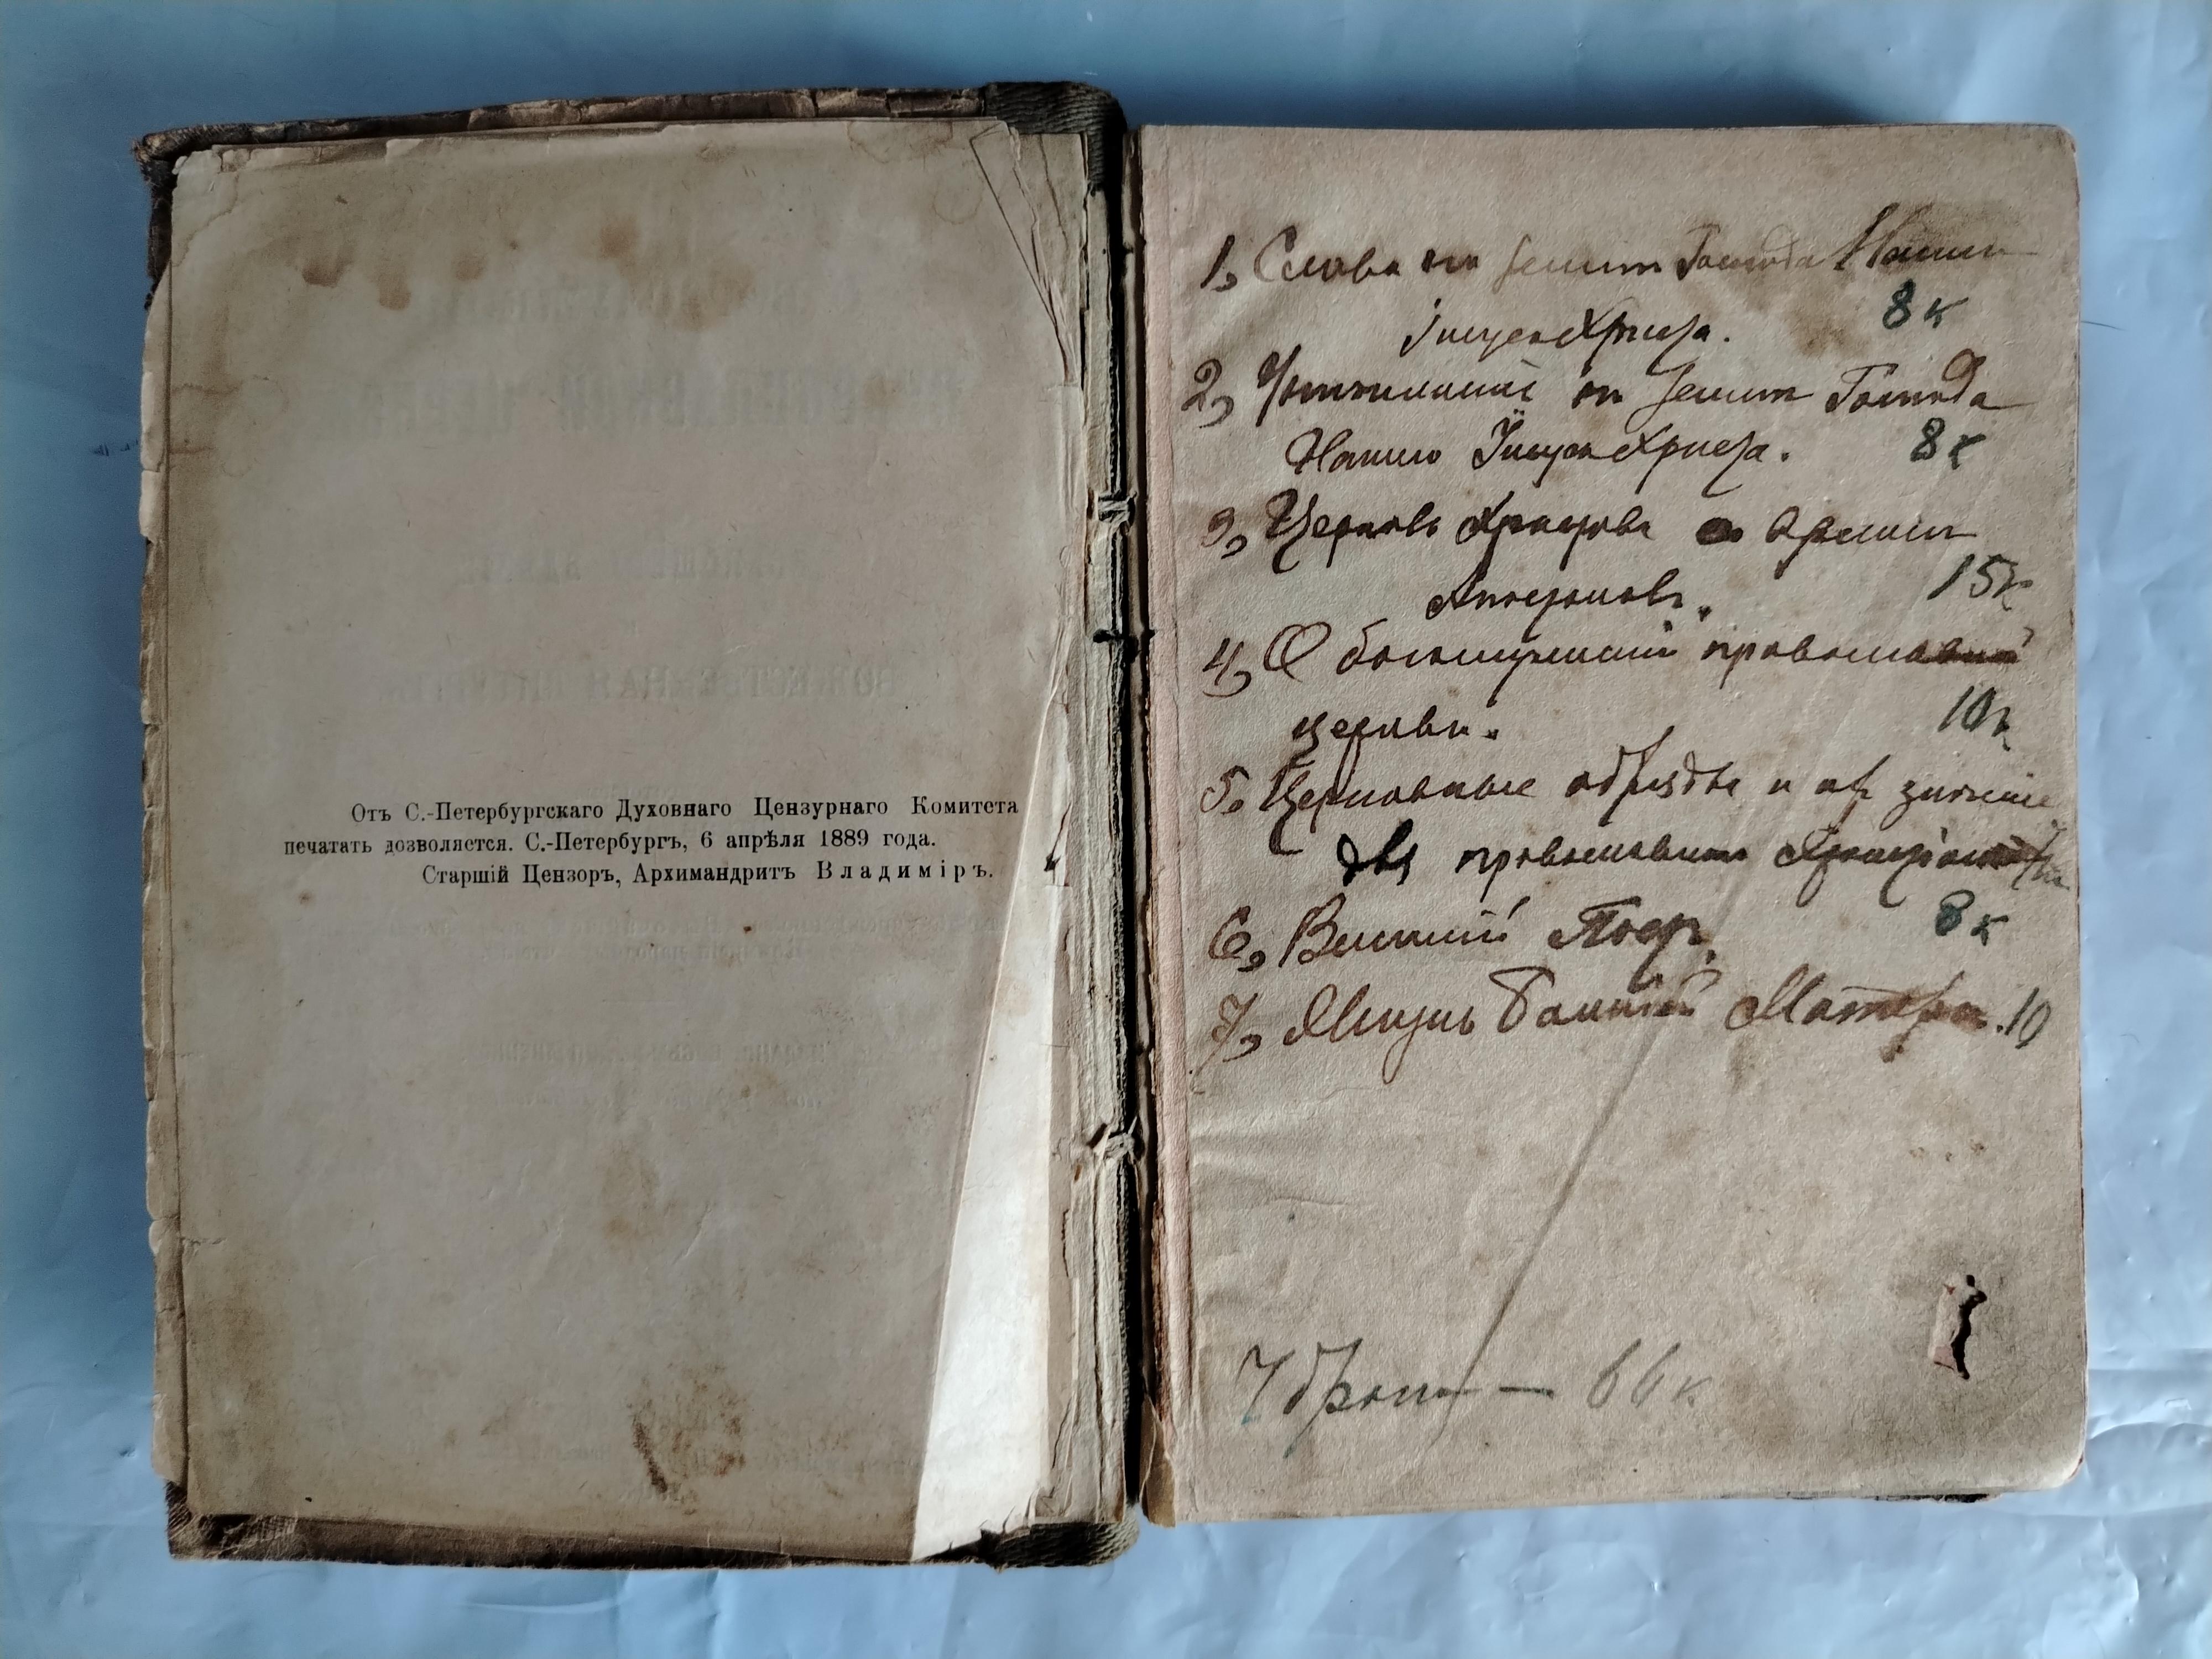 Отъ С.-Петербургскаго Духовнаго Цензурнаго Комитета
печатать дозволяется. С.-Петербургъ, 6 апрѣля 1889 года.
Старшій Цензоръ, Архимандритъ Владиміръ.
1, Слава Господа Нашего
Іисуса Христа.
8 к
2, о Господа
Нашего Іисуса Христа.
8 к
3, Церковь Христова во времена
Апостоловъ.
15 к
4, О богослуженіи православной
церкви.
10 к
5. Церковные обряды и ихъ значеніе
для православныхъ
6, Великій Постъ.
8 к
7, Жизнь Божіей Матери. 10
7 брош — 66 к